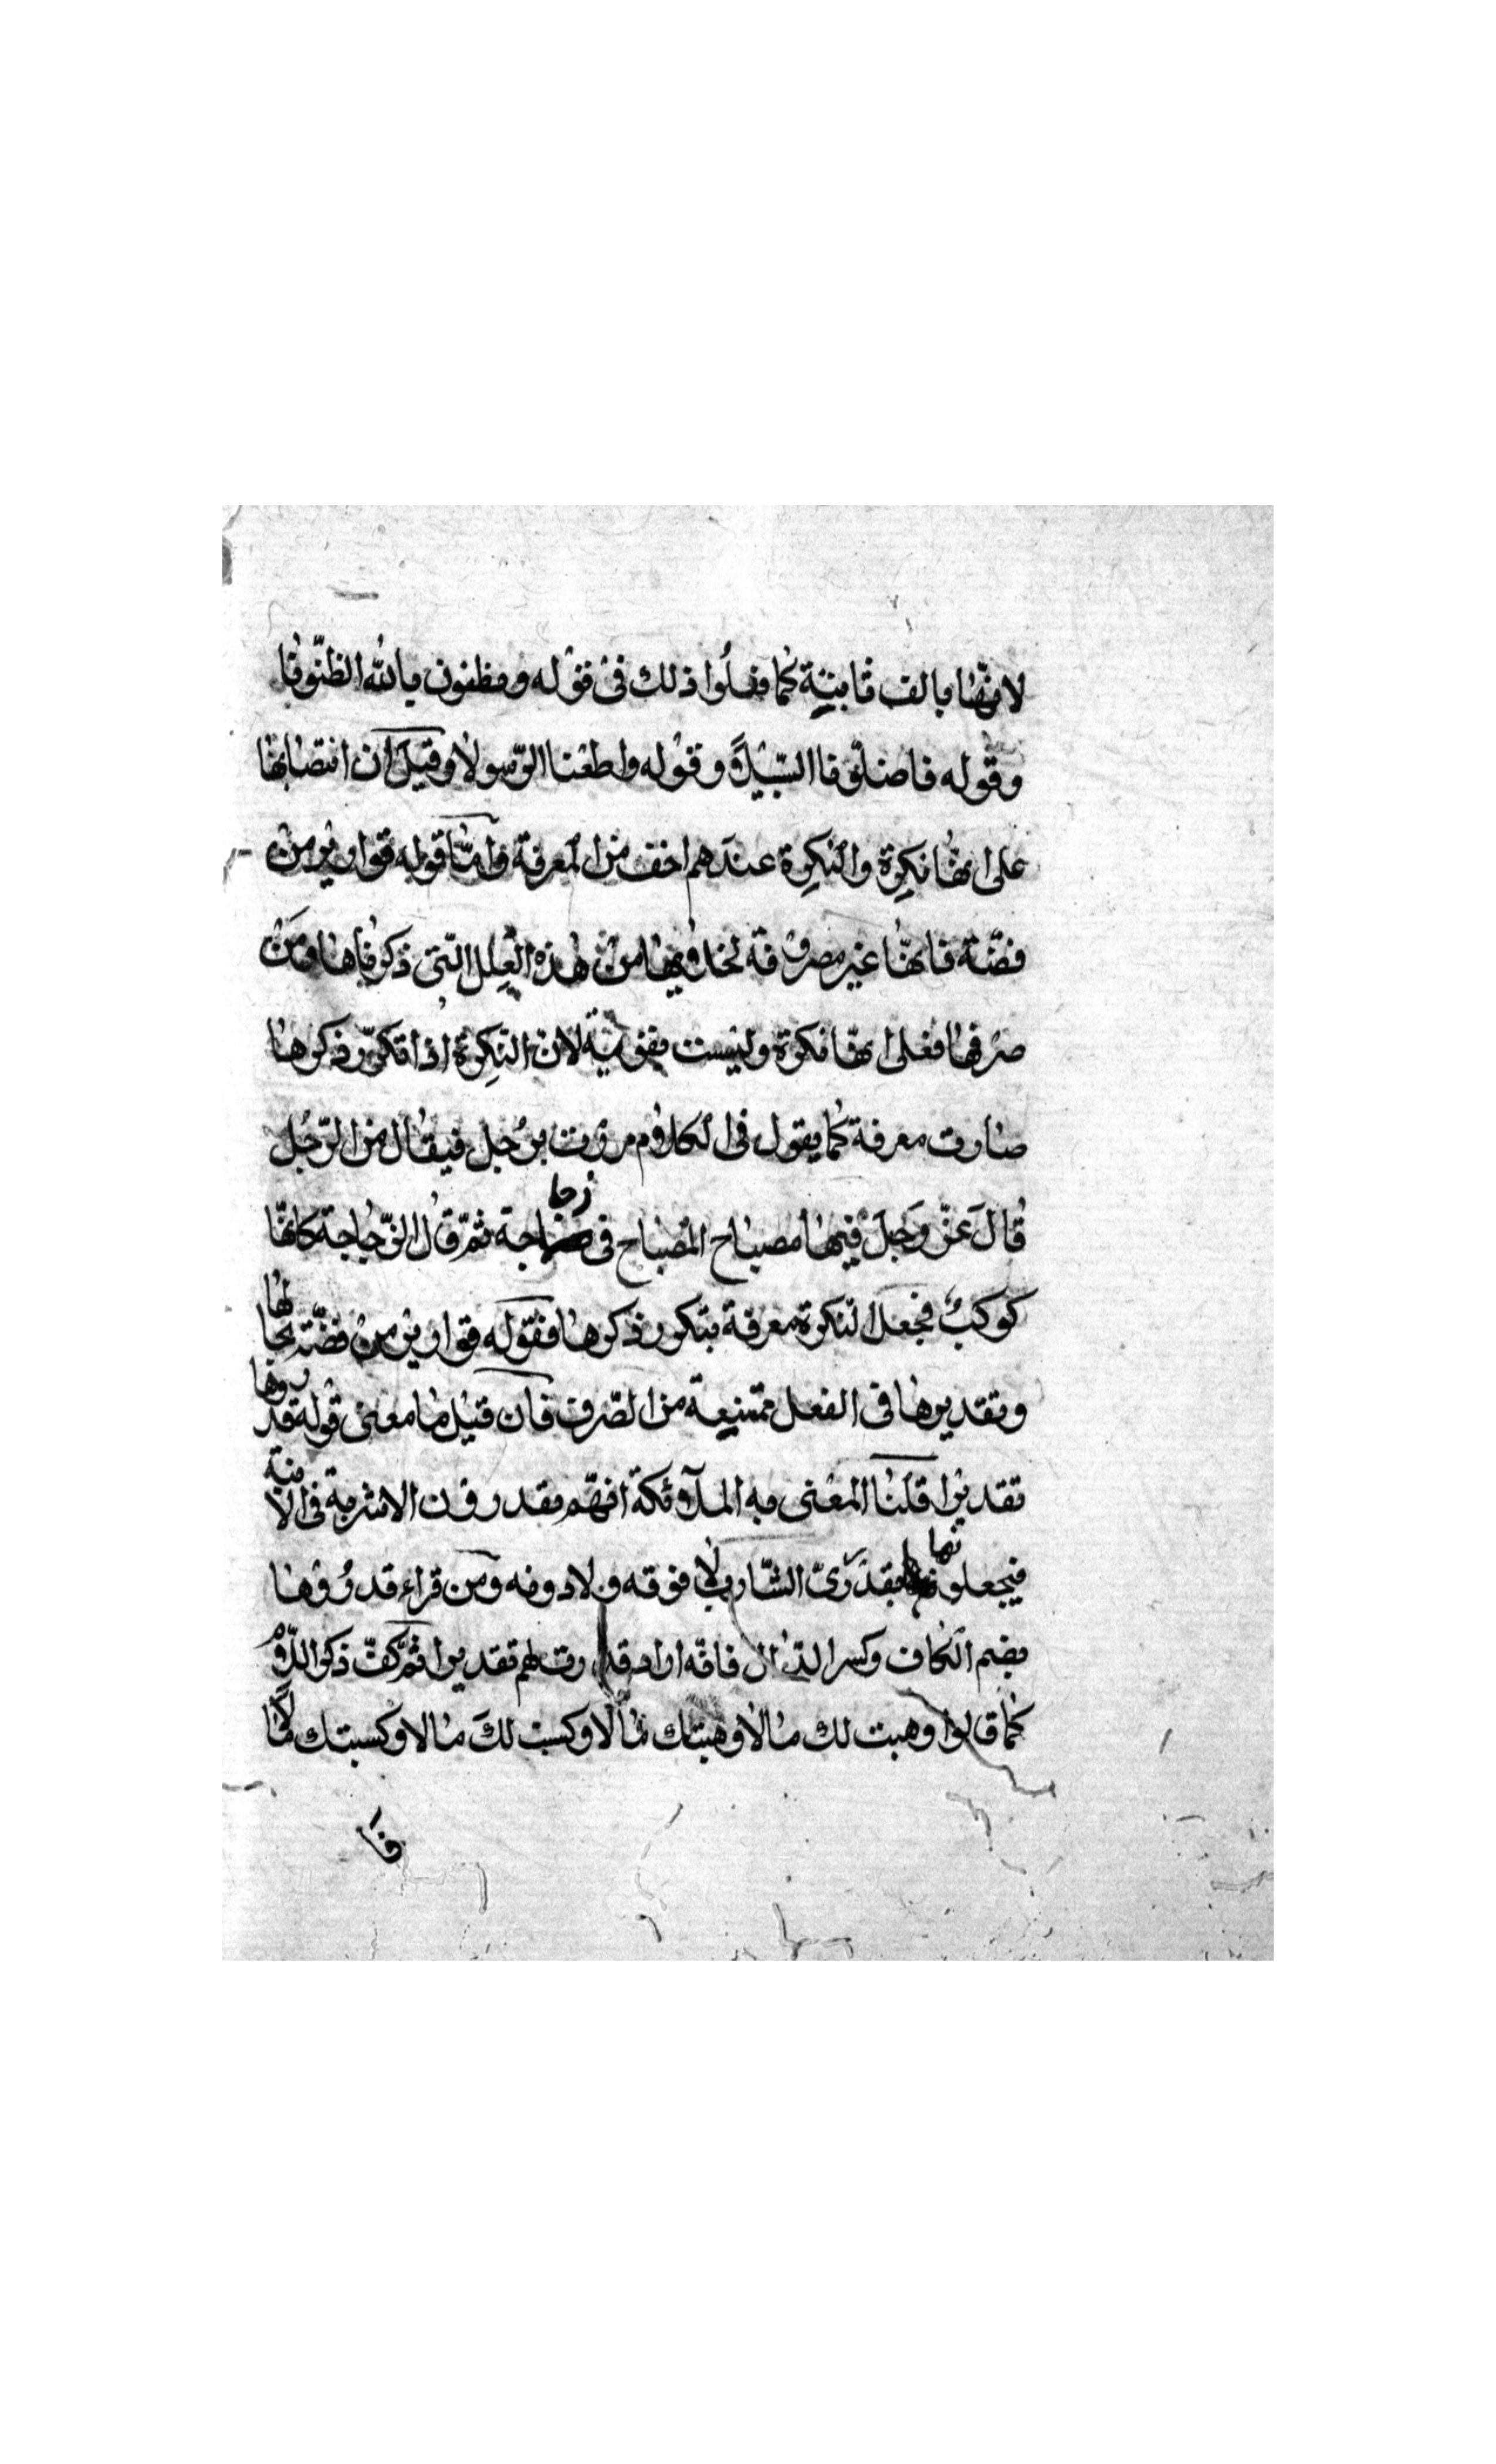 لانّها بالف ثابتة كما فعلوا ذلك فى قوله وتظنون بالله الظنّونا
وقوله فاضلّونا السّبيلا وقوله واطعنا الرّسولا وقيل ان انتصابها
على انها نكرة والنكرة عندهم اخف من المعرفة وامّا قوله قوارير من
فضّة فانّها غير مصروفة لخلوّها من هذه العلل الّتى ذكرناها ومن
صرفها فعلى انّها نكرة وليست بقوية لان النكرة اذا تكرّر ذكرها
صارت معرفة كما يقول فى الكلام مررت برجل فيقال من الرّجل
قال عزّ وجلّ فيها مصباح المصباح فى زجاجة ثمّ قال الزّجاجة كانّها
كوكب فجعل النكرة معرفة بتكرر ذكرها فقوله قوارير من فضّة بحالها
وتقديرها فى الفعل ممتنعة من الصّرف فان قيل ما معنى قوله قدروها
تقديرا قلنا المعنى به الملآئكة انهّم يقدرون الاشربة فى الآنية
فيجعلونها بقدر رىّ الشّارب لا فوقه ولا دونه ومن قراء قدروها
بضم الكاف وكسر الدال فانّه اراد قدرت لهم تقديرا ثمّ كفّ ذكر اللّام
كما قالوا وهبت لك مالا وهبتك مالا وكسبت لك مالا وكسبتك مالا
فا